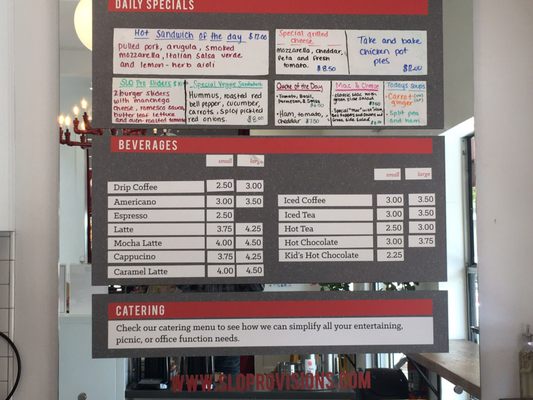 DAILY SPECIALS
Hot Sandwich of the day
pulled pork, arugula, smoked
mozzarella, Italian Salsa verde
and lemon-herb aioli
Special grilled
cheese
Mozzarella, cheddar,
feta and fresh
tomato. $8.50
Take and bake
chicken pot
pies
SLO Pro Sliders
2 burger sliders
with manchego
cheese, romesco sauce,
butter leaf lettuce
and oven roasted tomato
Special Veggie Sandwich
Hummus, roasted red
bell pepper, cucumber,
carrots, spicy pickled
red onions.
Quiche of the Day
• Tomato, Basil,
Parmesan, & Swiss
• Ham, tomato,
cheddar $7.50
Mac & Cheese
Todays Soups
Carrot
ginger
• Split pea
and ham
BEVERAGES
small large
Drip Coffee 2.50 3.00
Americano 3.00 3.50
Espresso 2.50
Latte 3.75 4.25
Mocha Latte 4.00 4.50
Cappucino 3.75 4.25
Caramel Latte 4.00 4.50
small large
Iced Coffee 3.00 3.50
Iced Tea 3.00 3.50
Hot Tea 2.50 3.00
Hot Chocolate 3.00 3.75
Kid's Hot Chocolate 2.25
CATERING
Check our catering menu to see how we can simplify all your entertaining,
picnic, or office function needs.
WWW.SLOPROVISIONS.COM